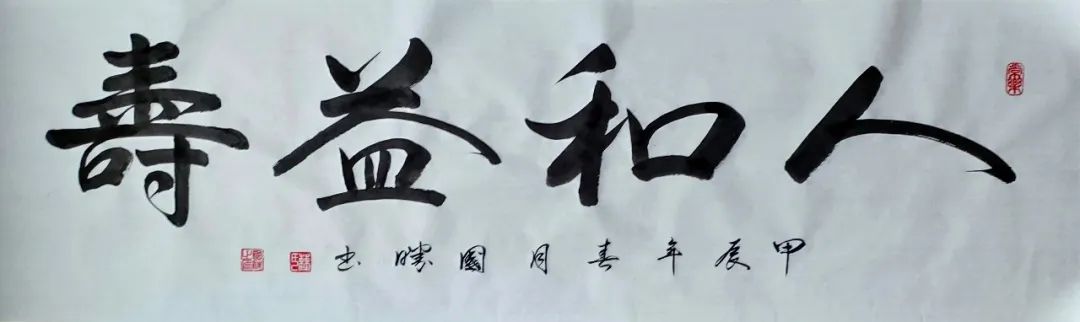 人和益壽
甲辰年春月國勝书